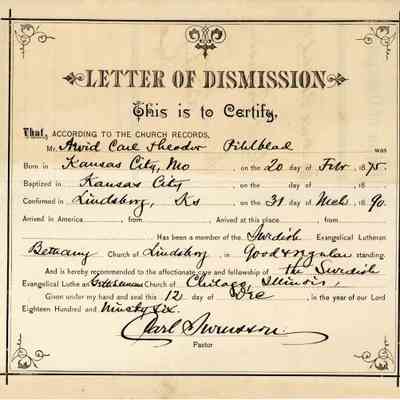 LETTER OF DISMISSION
This is to Certify,
That, ACCORDING TO THE CHURCH RECORDS,
Mr. Arvid Carl Theodor Pihlblad was
Born in Kansas City, Mo , on the 20 day of Febr , 1875.
Baptized in Kansas City , on the day of , 18
Confirmed in Lindsborg, Ks , on the 31 day of Mch , 1890.
Arrived in America , from . Arrived at this place , from
Has been a member of the Swedish Evangelical Lutheran
Bethany Church of Lindsborg in Good & regular standing.
And is hereby recommended to the affectionate care and fellowship of the Swedish
Evangelical Luthe an Church of Chicago, Illinois,
Given under my hand and seal this 12 day of Dec , in the year of our Lord
Eighteen Hundred and Ninety six.
Carl Swensson.
Pastor